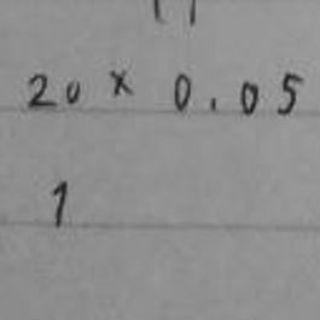 20 x 0.05
1